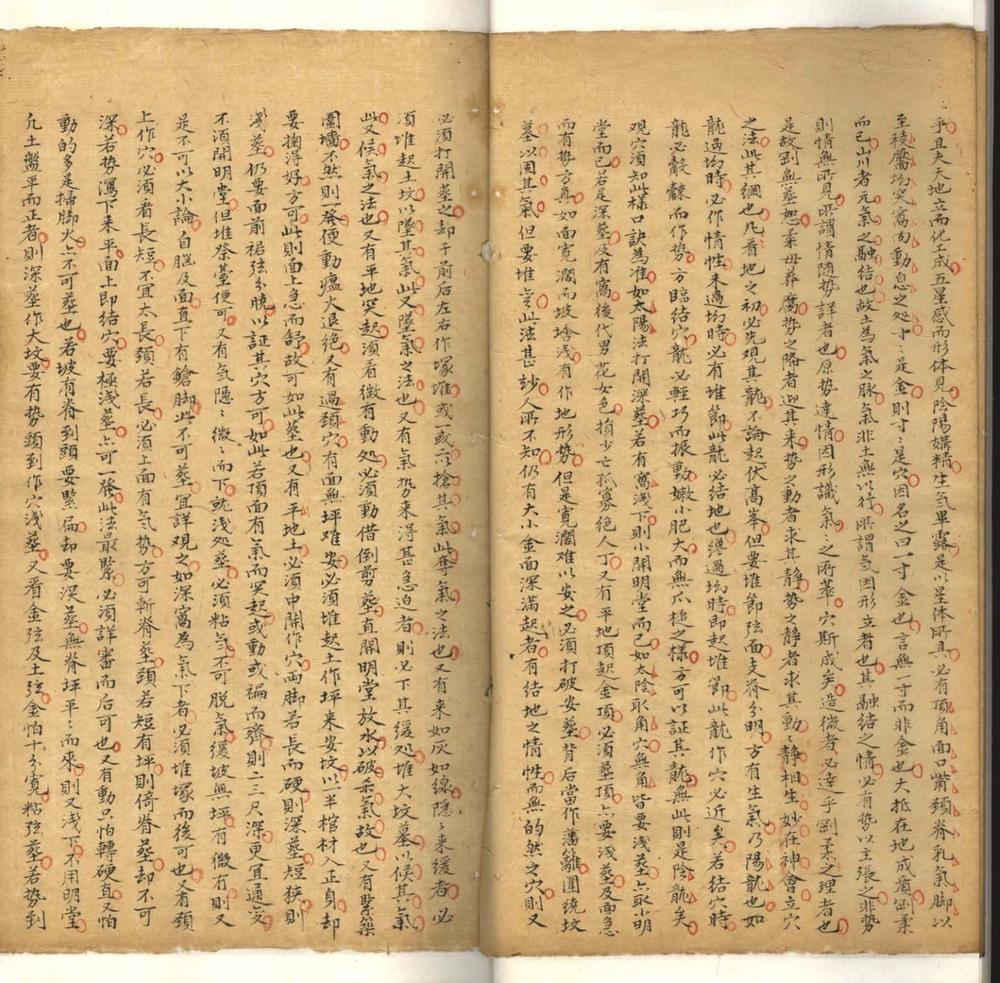 乎且夫天地立而化工成五星感而形体見陰陽媾精生气畢露是以星体所具必有頂角面口嘴頸脊乳氣脚以
至稜靨坳突窩肉動息之处寸〻是金則寸〻是穴因名之曰一寸金也言無一寸而非金也大抵在地成質剛柔
而已山川者元氣之融结也故土為氣之脉氣非土無以行所謂气因形立者也其融结之情必有势以主張之非势
則情無所見所謂情随势詳者也原势達情因形識氣〻之所萃穴斯成矣造微者必達乎剛柔之理者也
是故剛無葬恕柔毋葬腐势之降者迎其来势之動者求其静势之静者求其動〻静相生妙在神會立穴
之法此其綱也凡看地之初必先观其龍不論起伏高峯但要堆節弦面支脊分明方有生氣乃陽龍也如
龍過坳時必作情性未過坳時必有堆節此龍必结地也纔過坳時即起堆節此龍作穴必近矣若结穴時
龍必觳觫而作势方臨结穴龍必軽巧而振動嫩小肥大而無爪槌之様方可以証其龍無此則是陰龍矣
观穴須知此樣口訣為准如太陽法打開深葬若有窩浅下則小開明堂而已如太陰取角穴無角皆要浅葬亦取小明
堂而已若是深葬及有窩後代男花女色損少亡孤寡绝人丁又有平地頂起金頂必須葬頂亦要浅葬及面急
而有势方真如面寬濶而坡塝浅有作地形势但是寬濶难以安之必須打破安葬背后當作藩籬圍繞坟
墓以固其气但要堆官此法甚妙人所不知仍有大小金面深滿起者有结地之情性而無的然之穴則又
必須打開葬之却于前后左右作塚堆或一或二以搶其气此奪气之法也又有来如灰如線隱〻来缓者必
須堆起土坟以墜其氣此又墜气之法也又有气势来得甚急迫者則必下其缓处堆大坟墓以候其气
此又候气之法也又有平地突起須看微有動处必須動借倒剪葬直開明堂放水以破杀气故也又有緊築
圍墻不然則一發便動瘟火退绝又有過頸穴有面無坪难安必須堆起土作坪来安坟以一半棺材入正身却
要掬得好方可此則面上急而舒故可如此葬也又有平地土必須中開作穴两脚若長而硬則深葬短狭則
浅葬仍要面前裙弦分曉以証其穴方可如此若頂面有氣而突起或動或褊而齊則二三尺深更宜通变
不須開明堂但堆祭臺便可又有气隱〻微〻而下就浅处葬必須粘气不可脱气缓坡無坪有微有則又
是不可以大小論自腦及面直下有鎗脚此不可葬宜詳观之如深窩為气下者必須堆塚而後可也又有頸
上作穴必須看長短不宜太長頸若長必須上面有气势方可斬脊葬頸若短有坪則倚脊葬却不可
深若势瀉下来平面上即结穴要極浅葬亦可一發此法最緊必須詳審而后可也又有動只怕轉硬直又怕
動的多是掃脚火亦不可葬也若坡有脊到頭要緊扁却要深葬無脊坪〻而来則又浅下不用明堂
凡土盤平而正者則深葬作大坟要有势頭到作穴浅葬又看金弦及土弦金怕十分寛粘弦葬若势到